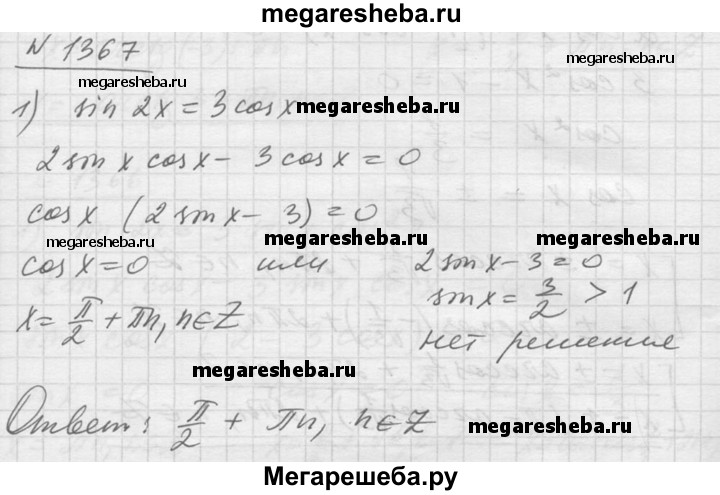 megaresheba.ru
N 1367
megaresheba.ru
megaresheba.ru
1) sin 2x = 3 cos x megaresheba.ru
2 sin x cos x - 3 cos x = 0
cos x (2 sin x - 3) = 0
megaresheba.ru megaresheba.ru megaresheba.ru
cos x = 0 или 2 sin x - 3 = 0
sin x = 3/2 > 1
x = π/2 + πn, n∈Z
нет решение
megaresheba.ru
Ответ: π/2 + πn, n∈Z megaresheba.ru
Мегарешеба.ру